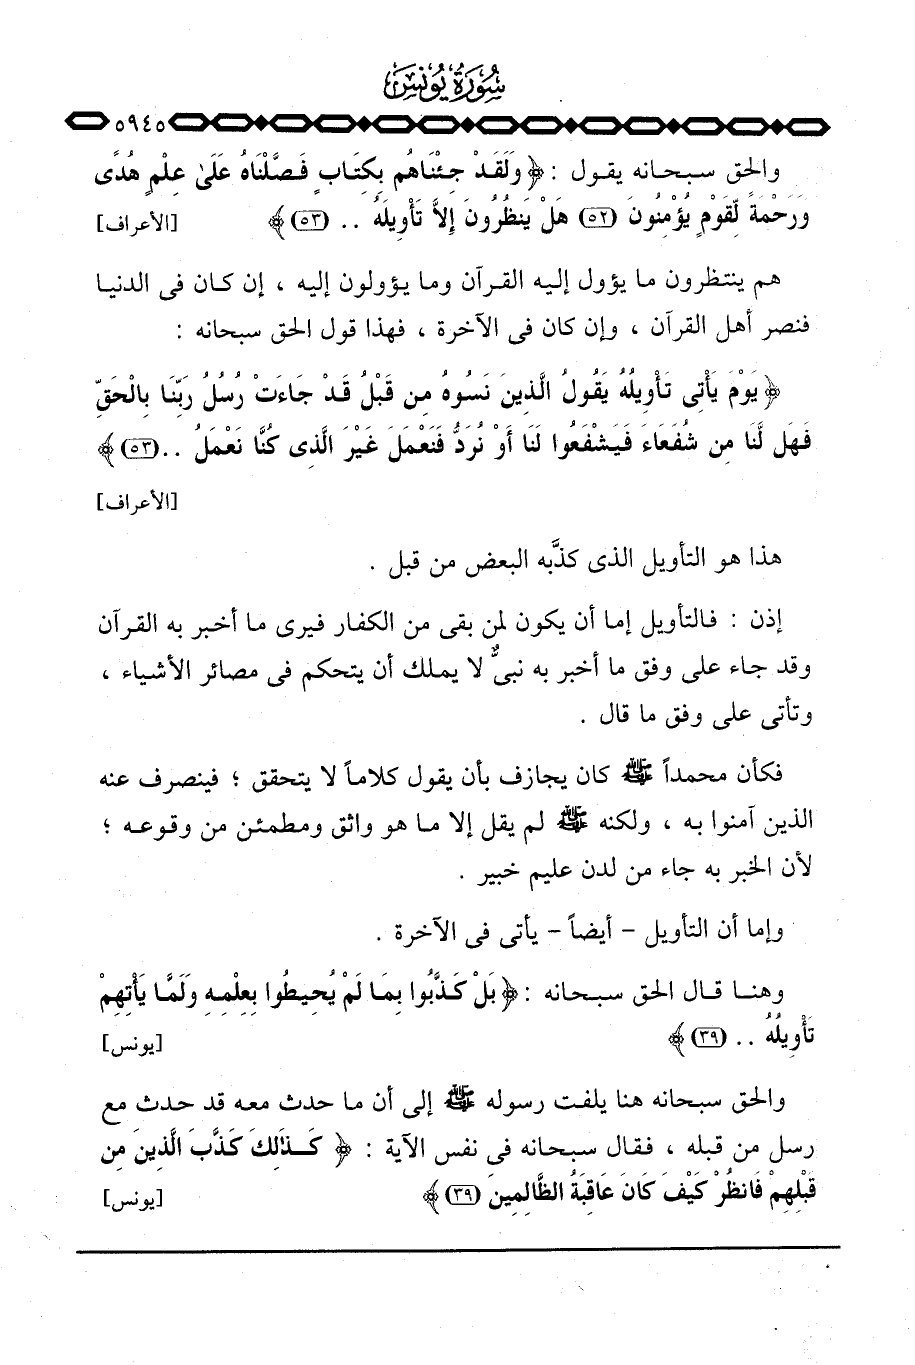 سُورَةُ يُونُسَ
٥٩٤٥
والحق سبحانه يقول : ﴿ وَلَقَدْ جِئْنَاهُم بِكِتَابٍ فَصَّلْنَاهُ عَلَىٰ عِلْمٍ هُدًى
وَرَحْمَةً لِّقَوْمٍ يُؤْمِنُونَ (٥٢) هَلْ يَنظُرُونَ إِلاَّ تَأْوِيلَهُ .. (٥٣) ﴾ [الأعراف]
هم ينتظرون ما يؤول إليه القرآن وما يؤولون إليه ، إن كان فى الدنيا
فنصر أهل القرآن ، وإن كان فى الآخرة ، فهذا قول الحق سبحانه :
﴿ يَوْمَ يَأْتِى تَأْوِيلُهُ يَقُولُ الَّذِينَ نَسُوهُ مِن قَبْلُ قَدْ جَاءَتْ رُسُلُ رَبِّنَا بِالْحَقِّ
فَهَل لَّنَا مِن شُفَعَاءَ فَيَشْفَعُوا لَنَا أَوْ نُرَدُّ فَنَعْمَلَ غَيْرَ الَّذِى كُنَّا نَعْمَلُ .. (٥٣) ﴾
[الأعراف]
هذا هو التأويل الذى كذَّبه البعض من قبل .
إذن : فالتأويل إما أن يكون لمن بقى من الكفار فيرى ما أخبر به القرآن
وقد جاء على وفق ما أخبر به نبىٌّ لا يملك أن يتحكم فى مصائر الأشياء ،
وتأتى على وفق ما قال .
فكأن محمداً ﷺ كان يجازف بأن يقول كلاماً لا يتحقق ؛ فينصرف عنه
الذين آمنوا به ، ولكنه ﷺ لم يقل إلا ما هو واثق ومطمئن من وقوعه ؛
لأن الخبر به جاء من لدن عليم خبير .
وإما أن التأويل – أيضاً – يأتى فى الآخرة .
وهنا قال الحق سبحانه : ﴿ بَلْ كَذَّبُوا بِمَا لَمْ يُحِيطُوا بِعِلْمِهِ وَلَمَّا يَأْتِهِمْ
تَأْوِيلُهُ .. (٣٩) ﴾ [يونس]
والحق سبحانه هنا يلفت رسوله ﷺ إلى أن ما حدث معه قد حدث مع
رسل من قبله ، فقال سبحانه فى نفس الآية : ﴿ كَذَٰلِكَ كَذَّبَ الَّذِينَ مِن
قَبْلِهِمْ فَانظُرْ كَيْفَ كَانَ عَاقِبَةُ الظَّالِمِينَ (٣٩) ﴾ [يونس]